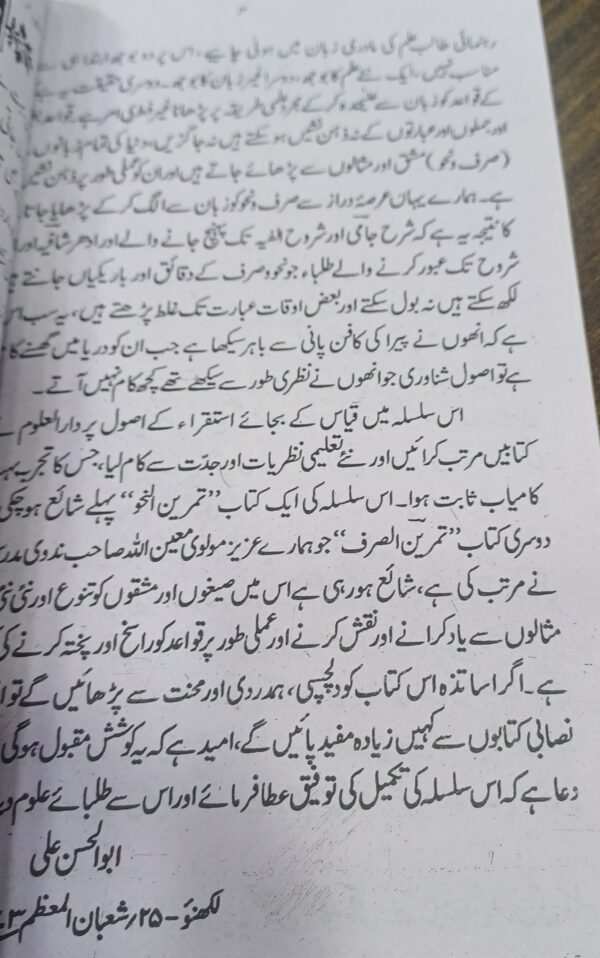 رہنمائی طالب علم کی مادری زبان میں ہونی چاہیے، اس پر دو بوجھ ابتدا ہی سے
مناسب نہیں، ایک نئے علم کا بوجھ، دوسرا غیر زبان کا بوجھ۔ دوسری حقیقت یہ ہے
کے قواعد کو زبان سے علیٰحدہ کر کے مجرد علمی طریقہ پر پڑھانا غیر فطری امر ہے، قواعد
اور جملوں اور عبارتوں کے نہ ذہن نشیں ہو سکتے ہیں نہ جاگزیں، دنیا کی تمام زبانوں
(صرف ونحو) مشق اور مثالوں سے پڑھائے جاتے ہیں اور ان کو عملی طور پر ذہن نشیں
ہے۔ ہمارے یہاں عرصۂ دراز سے صرف ونحو کو زبان سے الگ کر کے پڑھایا جاتا
کا نتیجہ یہ ہے کہ شرح جامی اور شروح الفیہ تک پہنچ جانے والے اور ادھر شافیہ اور
شروح تک عبور کرنے والے طلباء جو نحو وصرف کے دقائق اور باریکیاں جانتے
لکھ سکتے ہیں نہ بول سکتے اور بعض اوقات عبارت تک غلط پڑھتے ہیں، یہ سب اس
ہے کہ انھوں نے پیراکی کا فن پانی سے باہر سیکھا ہے جب ان کو دریا میں گھسنے کا
ہے تو اصول شناوری جو انھوں نے نظری طور سے سیکھے تھے کچھ کام نہیں آتے۔
اس سلسلہ میں قیاس کے بجائے استقراء کے اصول پر دارالعلوم
کتابیں مرتب کرائیں اور نئے تعلیمی نظریات اور جدّت سے کام لیا، جس کا تجربہ
کامیاب ثابت ہوا۔ اس سلسلہ کی ایک کتاب ’’تمرین النحو‘‘ پہلے شائع ہو چکی
دوسری کتاب ’’تمرین الصرف‘‘ جو ہمارے عزیز مولوی معین اللہ صاحب ندوی
نے مرتب کی ہے، شائع ہو رہی ہے اس میں صیغوں اور مشقوں کو تنوع اور نئی نئی
مثالوں سے یاد کرانے اور نقش کرنے اور عملی طور پر قواعد کو راسخ اور پختہ کرنے کی
ہے۔ اگر اساتذہ اس کتاب کو دلچسپی، ہمدردی اور محنت سے پڑھائیں گے تو
نصابی کتابوں سے کہیں زیادہ مفید پائیں گے، امید ہے کہ یہ کوشش مقبول ہوگی
دعا ہے کہ اس سلسلہ کی تکمیل کی توفیق عطا فرمائے اور اس سے طلبائے علوم
ابوالحسن علی
لکھنؤ - ۲۵؍ شعبان المعظم